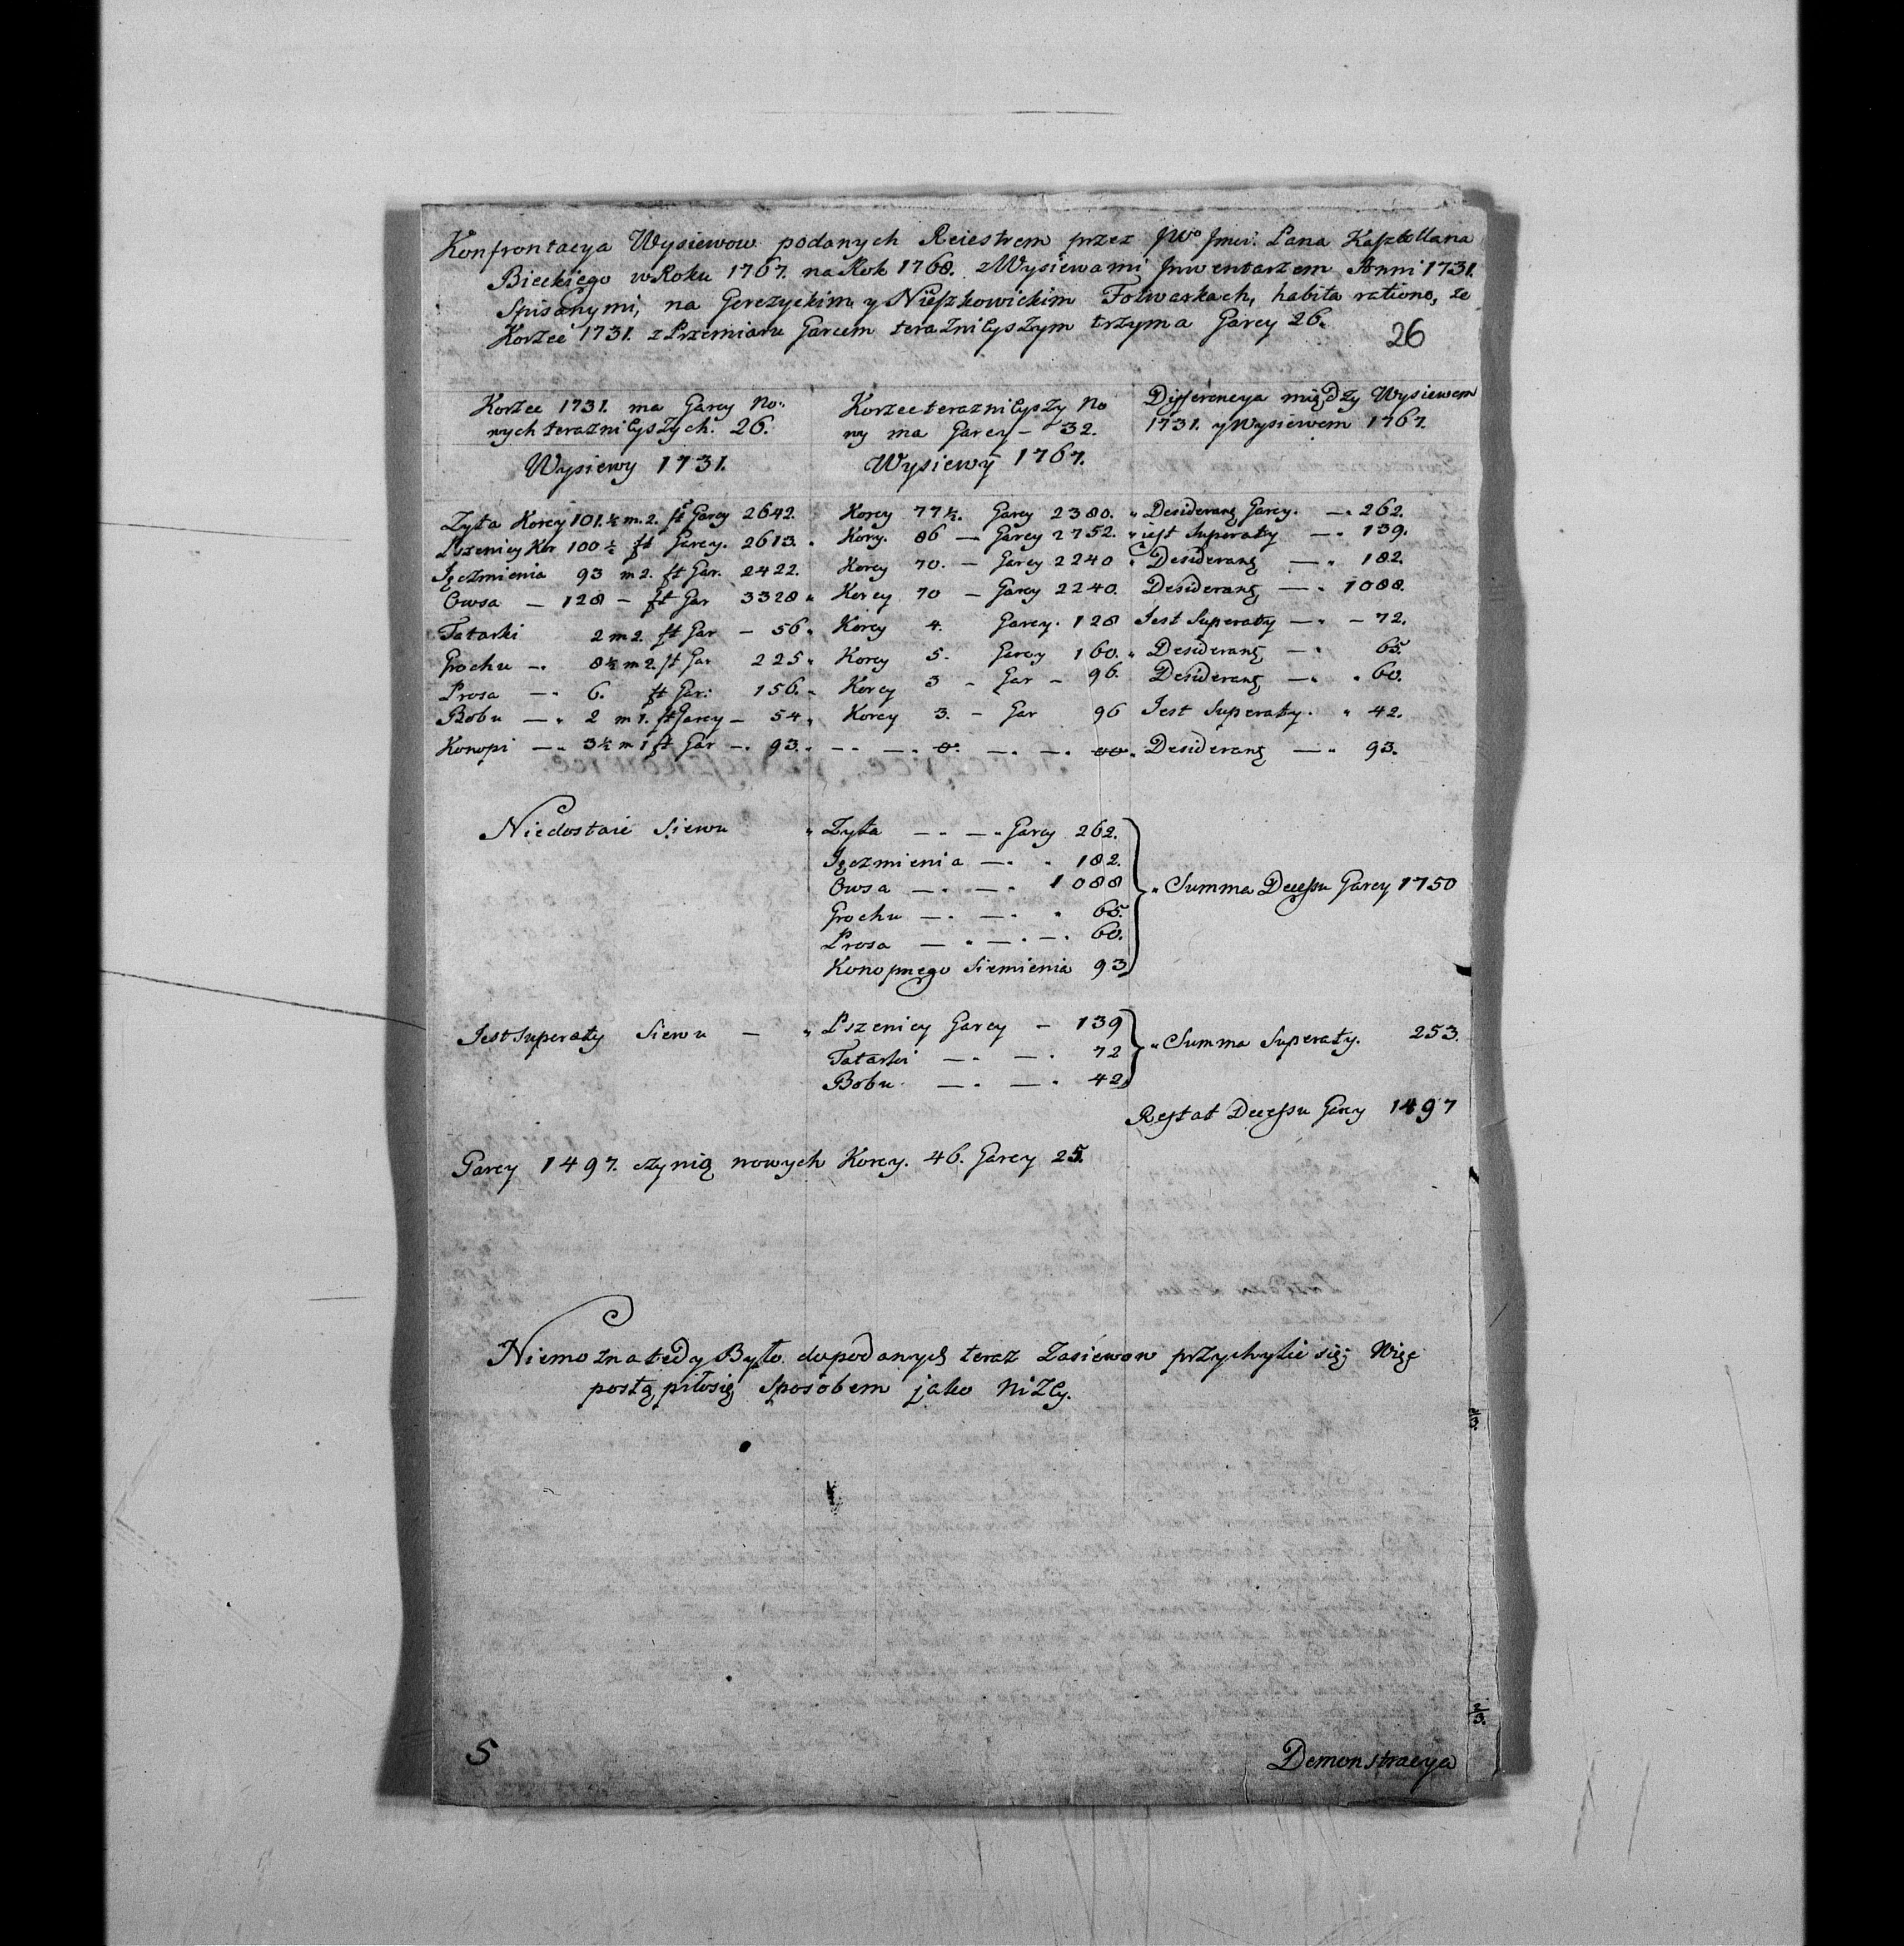 Konfrontacya Wysiewow podanych Reiestrem przez JWo Jmci. Pana Kasztellana
Bieckiego w Roku 1767. na Rok 1768. z Wysiewami Jnwentarzem Anni 1731.
Spisanymi, na Gorczyckim y Nieszkowickim Folwarkach, habita ratione, ze
Korzec 1731. z Przemiaru Garcem teraznieyszym trzyma Garcy 26.
26
Korzec 1731. ma Garcy No-
wych teraznieyszych. 26.
Wysiewy 1731.
Korzec teraznieyszy No
wy ma Garcy - 32.
Wysiewy 1767.
Differencya między Wysiewem
1731. y Wysiewem 1767.
Zyta Korcy 101.½ m. 2. ft Garcy 2642. Korcy 77½. Garcy 2380. " Desiderantę Garcy. — 262.
Pszenicy Kor 100½ ft Garcy. 2613. Korcy. 86 — Garcy 2752. " iest Superaty — 139.
Jęczmienia 93 m 2. ft Gar. 2422. Korcy 70. — Garcy 2240 " Desiderantę — " 182.
Owsa — 128 — ft Gar 3328 " Korcy 70 — Garcy 2240. Desiderantę — " 1088.
Tatarki 2 m 2. ft Gar — 56 " Korcy 4. Garcy. 128 Jest Superaty — " — 72.
Grochu — 8½ m 2. ft Gar 225 " Korcy 5. Garcy 160. " Desiderantę — " 65.
Prosa — 6. ft Gar: 156. " Korcy 3 — Gar — 96. Desiderantę — " 60.
Bobu — " 2 m 1. ft Garcy — 54 " Korcy 3. — Gar 96 Jest Superaty. " 42.
Konopi — 3½ m 1 ft Gar — 93. " — — 0. — — 00. Desiderantę — " 93.
Niedostaie Siewu " Zyta — — Garcy 262.
Jęczmienia — 182.
Owsa — — 1088
Grochu — — 65.
Prosa — — — 60.
Konopnego Siemienia 93
" Summa Decessu Garcy 1750
Jest Superaty Siewu — " Pszenicy Garcy — 139
Tatarki — — 72
Bobu — — 42
" Summa Superaty. 253.
Restat Decessu Garcy 1497
Garcy 1497. czynią nowych Korcy. 46. Garcy 25.
Niemozna tedy Było do podanych teraz Zasiewow przychylic się; Więc
postąpiłosię Sposobem jako Nizey.
5
Demonstracya